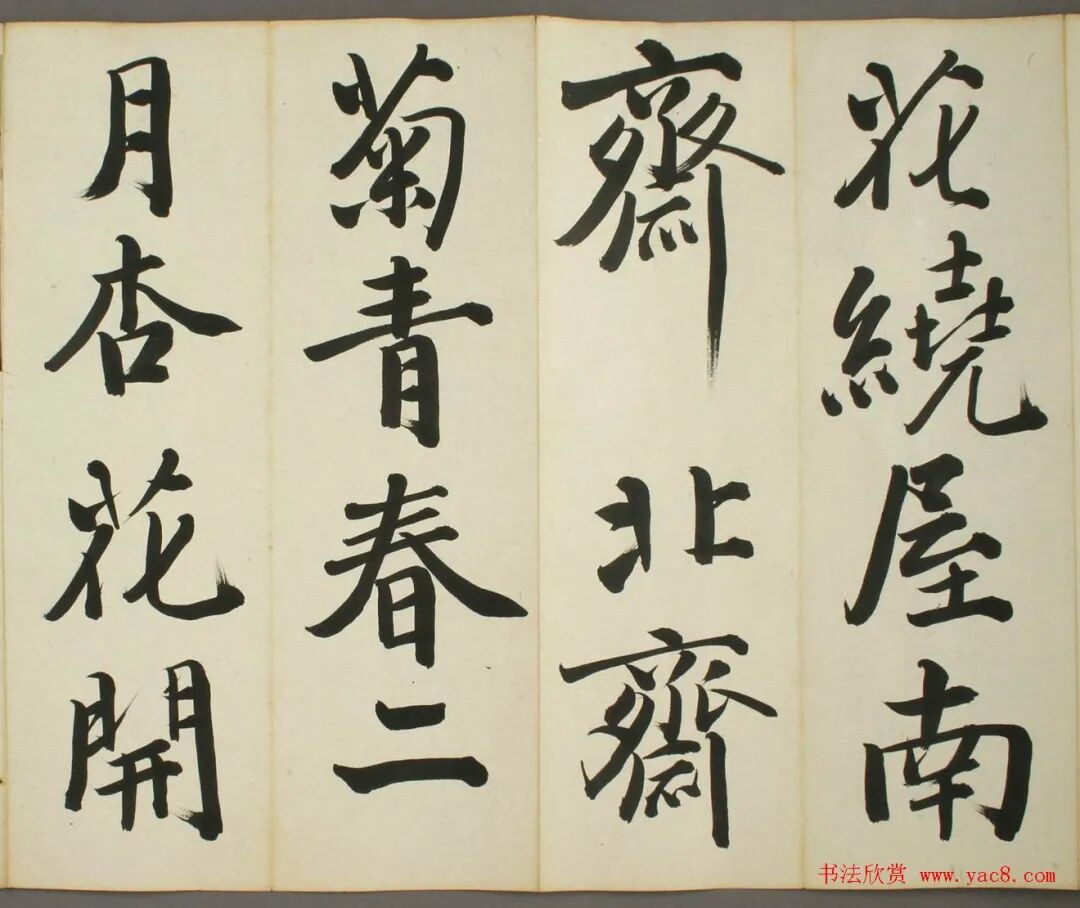 花繞屋南
齋北齋
菊青春二
月杏花開
书法欣赏 www.yac8.com